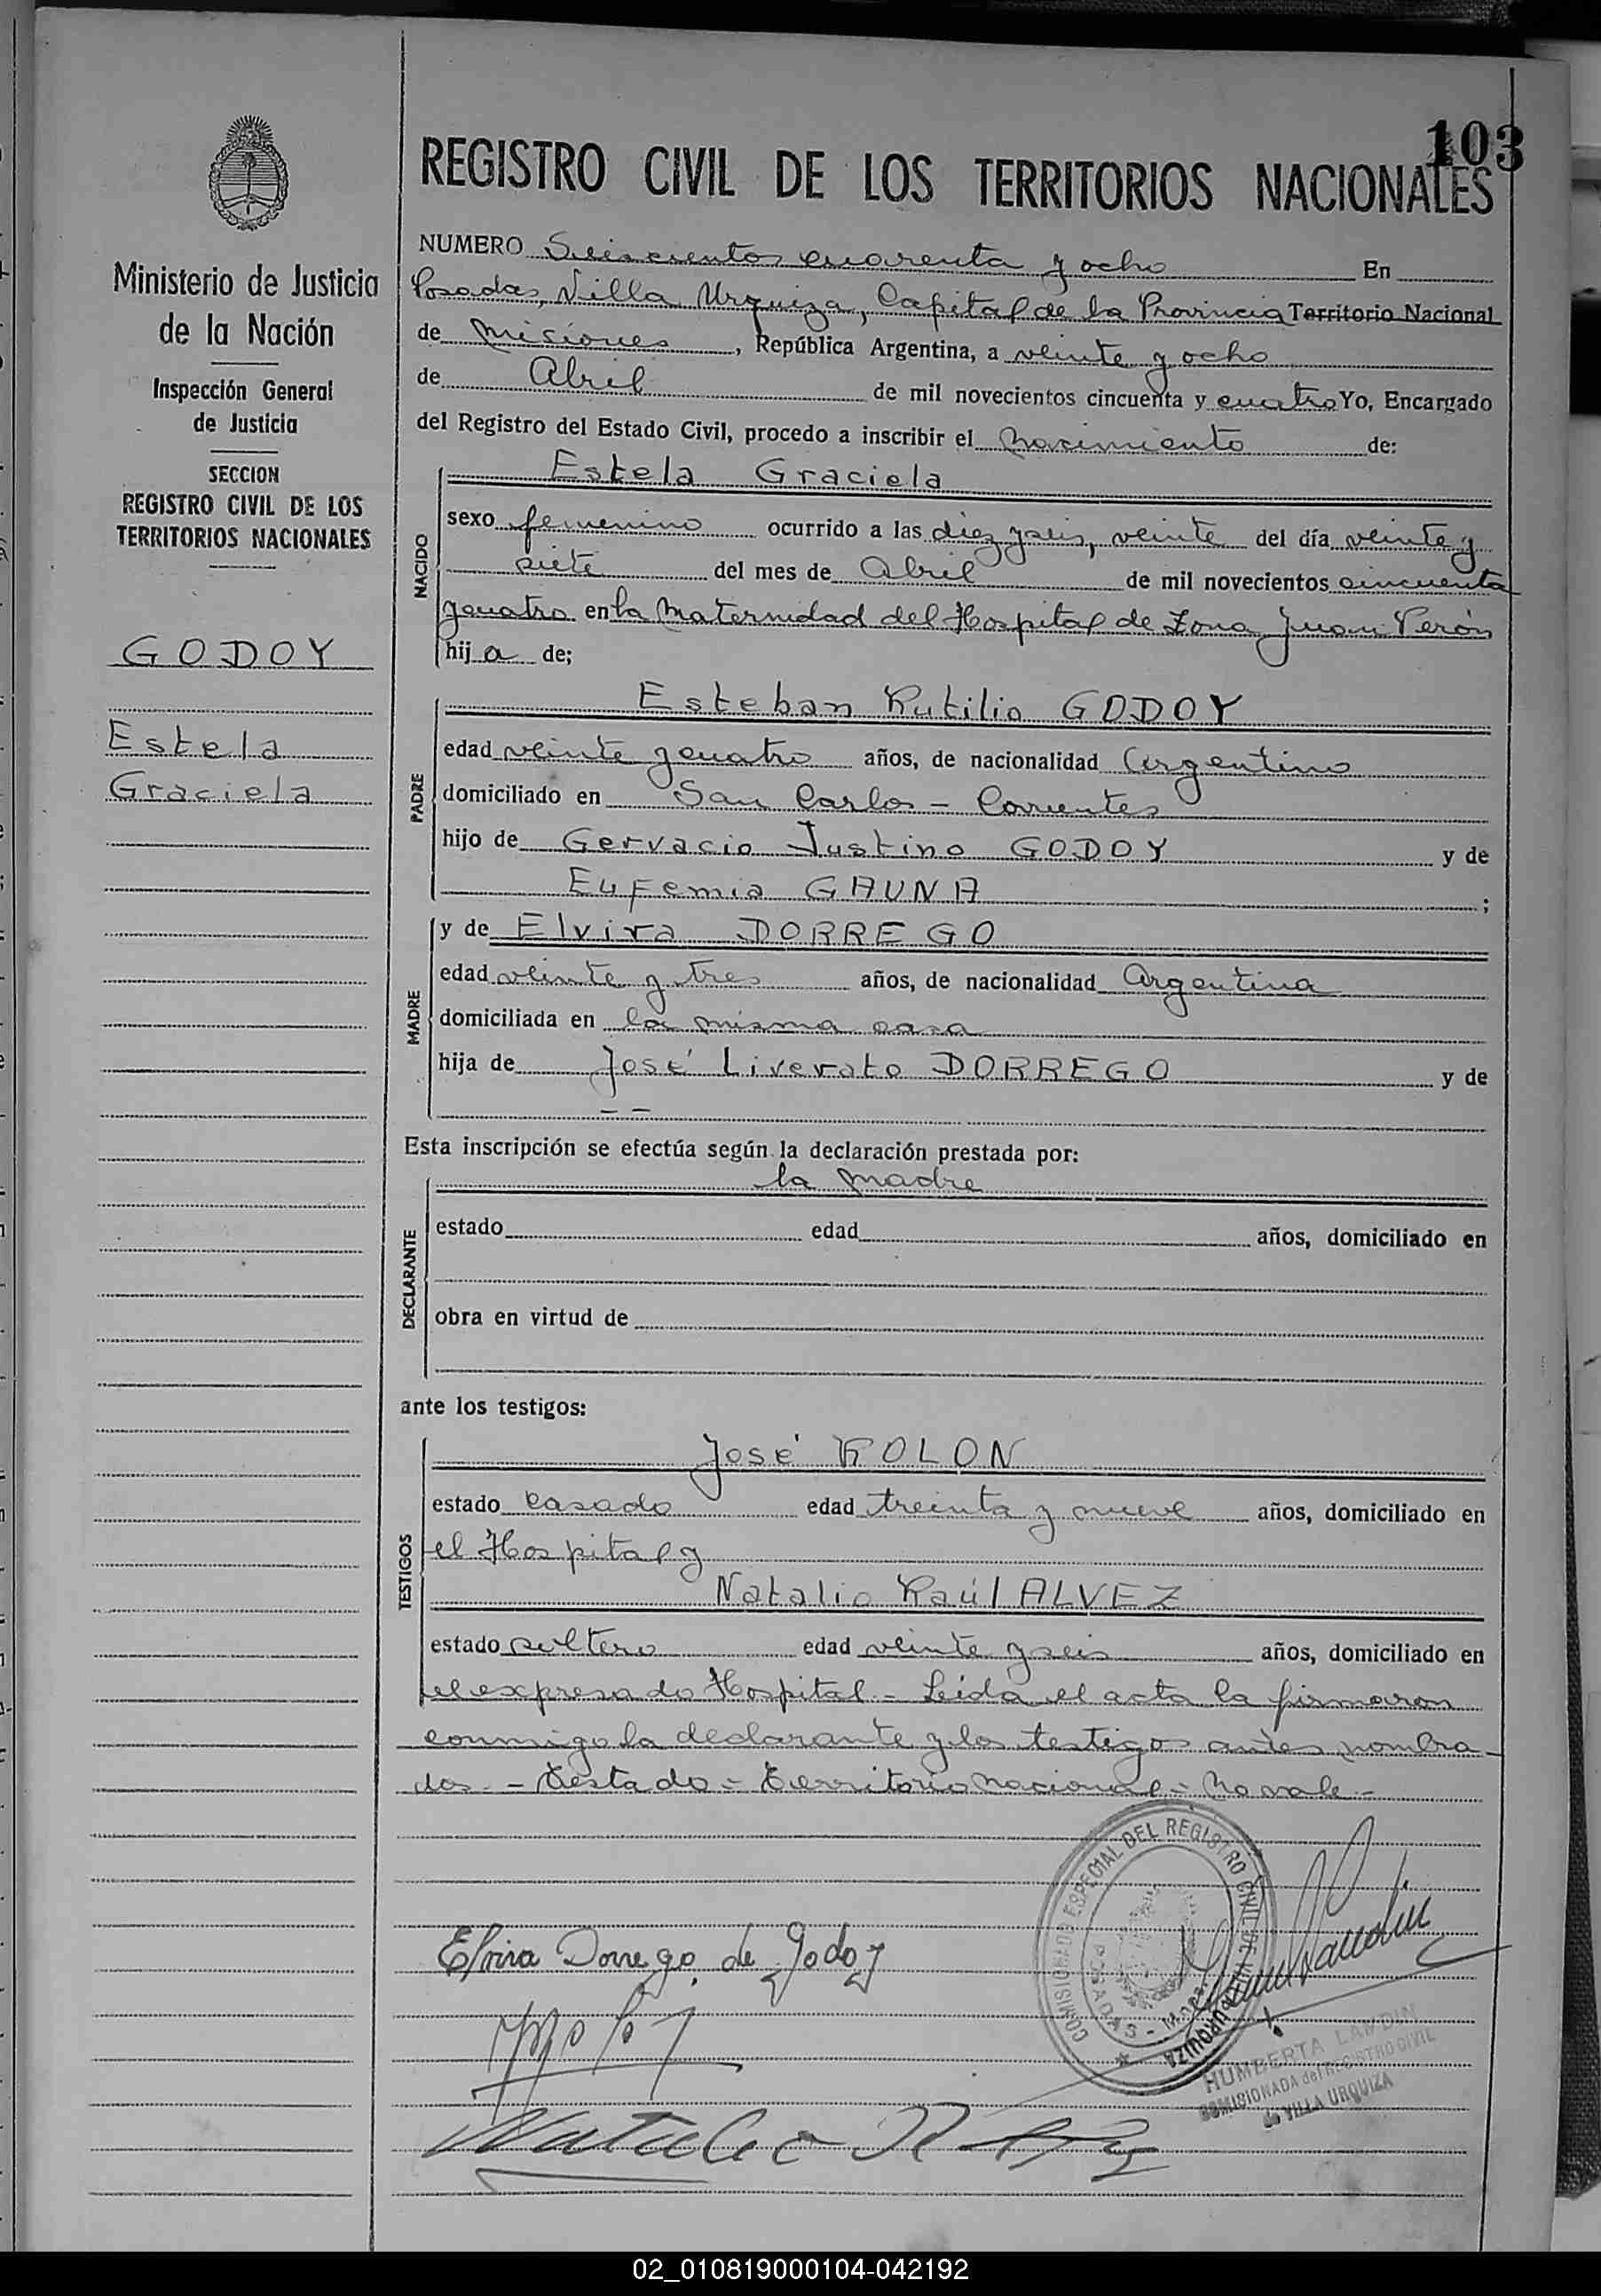 103
REGISTRO CIVIL DE LOS TERRITORIOS NACIONALES
Ministerio de Justicia
de la Nación
Inspección General
de Justicia
SECCION
REGISTRO CIVIL DE LOS
TERRITORIOS NACIONALES
GODOY
Estela
Graciela
NUMERO Seiscientos cuarenta y ocho En
Posadas, Villa Urquiza, Capital de la Provincia Territorio Nacional
de Misiones, República Argentina, a veinte y ocho
de Abril de mil novecientos cincuenta y cuatro Yo, Encargado
del Registro del Estado Civil, procedo a inscribir el nacimiento de:
NACIDO
Estela Graciela
sexo femenino ocurrido a las diez y seis, veinte del día veinte y
siete del mes de Abril de mil novecientos cincuenta
y cuatro en la Maternidad del Hospital de Zona Juan Perón
hija de;
PADRE
Esteban Rutilio GODOY
edad veinte y cuatro años, de nacionalidad Argentino
domiciliado en San Carlos - Corrientes
hijo de Gervacio Justino GODOY y de
Eufemia GAUNA ;
MADRE
y de Elvira DORREGO
edad veinte y tres años, de nacionalidad Argentina
domiciliada en la misma casa
hija de José Liverato DORREGO y de
- -
Esta inscripción se efectúa según la declaración prestada por:
DECLARANTE
la madre
estado edad años, domiciliado en
obra en virtud de
ante los testigos:
TESTIGOS
José ROLON
estado casado edad treinta y nueve años, domiciliado en
el Hospital y
Natalio Raúl ALVEZ
estado soltero edad veinte y seis años, domiciliado en
el expresado Hospital - Leida el acta la firmaron
conmigo la declarante y los testigos antes nombra-
dos. - Testado - Territorio nacional - No vale -
COMISIONADO ESPECIAL DEL REGISTRO CIVIL DE VILLA URQUIZA
POSADAS -
Elvira Dorrego de Godoy
HUMBERTA LANDIN
COMISIONADA del REGISTRO CIVIL
de VILLA URQUIZA
Natalio R
02_010819000104-042192